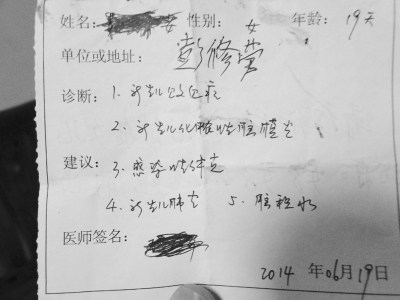 姓名: 女 性别: 女 年龄: 19天
单位或地址: 彭修营
诊断: 1. 新生儿败血症
2. 新生儿化脓性脑膜炎
建议: 3. 感染性休克
4. 新生儿肺炎 5. 脑积水
医师签名:
2014 年 06 月 19 日